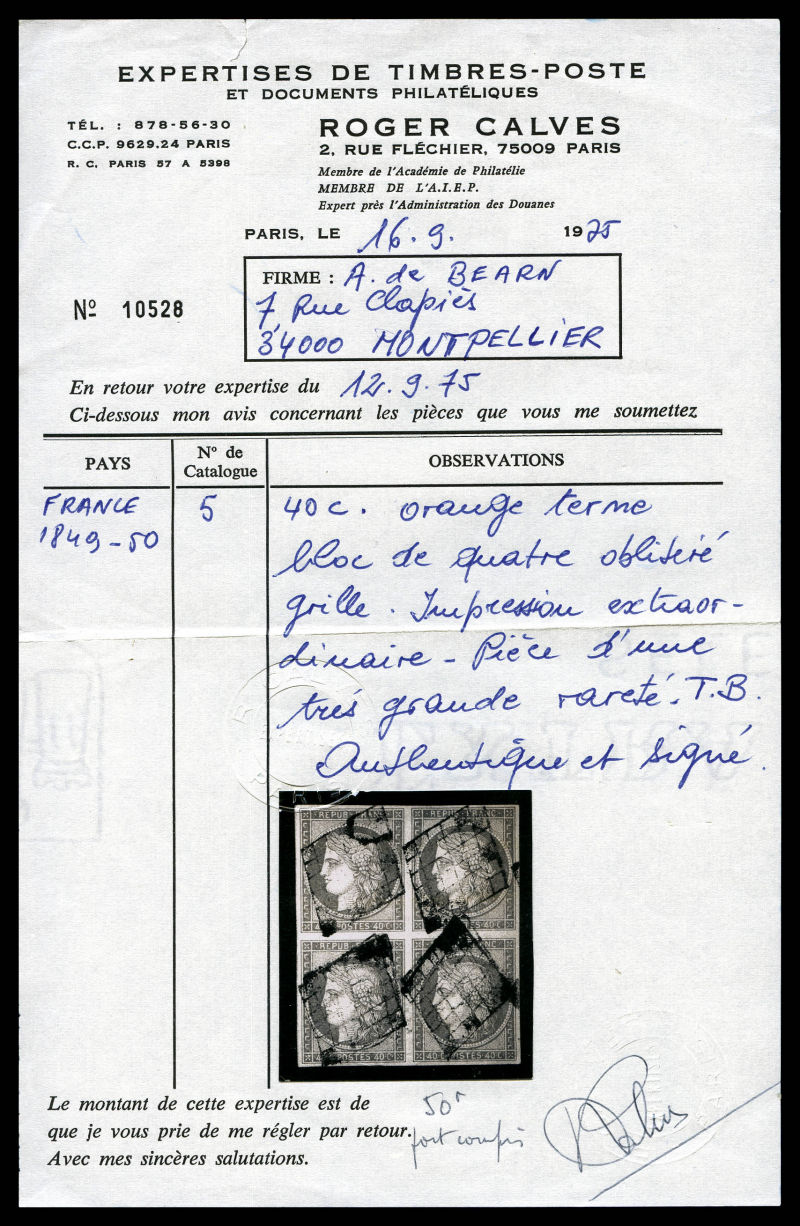 EXPERTISES DE TIMBRES-POSTE
ET DOCUMENTS PHILATÉLIQUES
TÉL. : 878-56-30
C.C.P. 9629.24 PARIS
R. C. PARIS 57 A 5398
ROGER CALVES
2, RUE FLÉCHIER, 75009 PARIS
Membre de l'Académie de Philatélie
MEMBRE DE L'A.I.E.P.
Expert près l'Administration des Douanes
PARIS, LE 16.9. 1975
Nº 10528
FIRME : A. de BEARN
7 Rue Clapiès
34000 MONTPELLIER
En retour votre expertise du 12.9.75
Ci-dessous mon avis concernant les pièces que vous me soumettez
PAYS
N° de Catalogue
OBSERVATIONS
FRANCE
1849-50
5
40c. orange terne
bloc de quatre obliteré
grille. Impression extraor-
dinaire - Pièce d'une
très grande rareté. T.B.
Authentique et signé.
REPUB FRANC
REPUB FRANC
40 C POSTES 40 C
40 C POSTES 40 C
REPUB FRANC
REPUB FRANC
40 C POSTES 40 C
40 C POSTES 40 C
Le montant de cette expertise est de 50F
que je vous prie de me régler par retour. port compris
Avec mes sincères salutations.